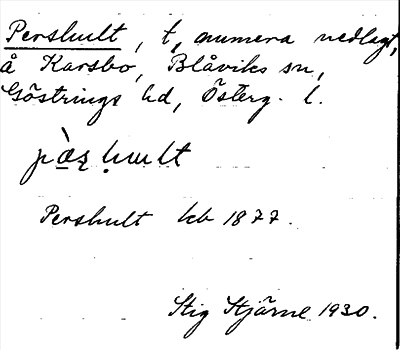 Pershult, t, numera nedlagt,
å Karsbo, Blåviks sn,
Göstrings hd, Österg. l.
pàʂ hult
Pershult kb 1877.
Stig Stjärne 1930.